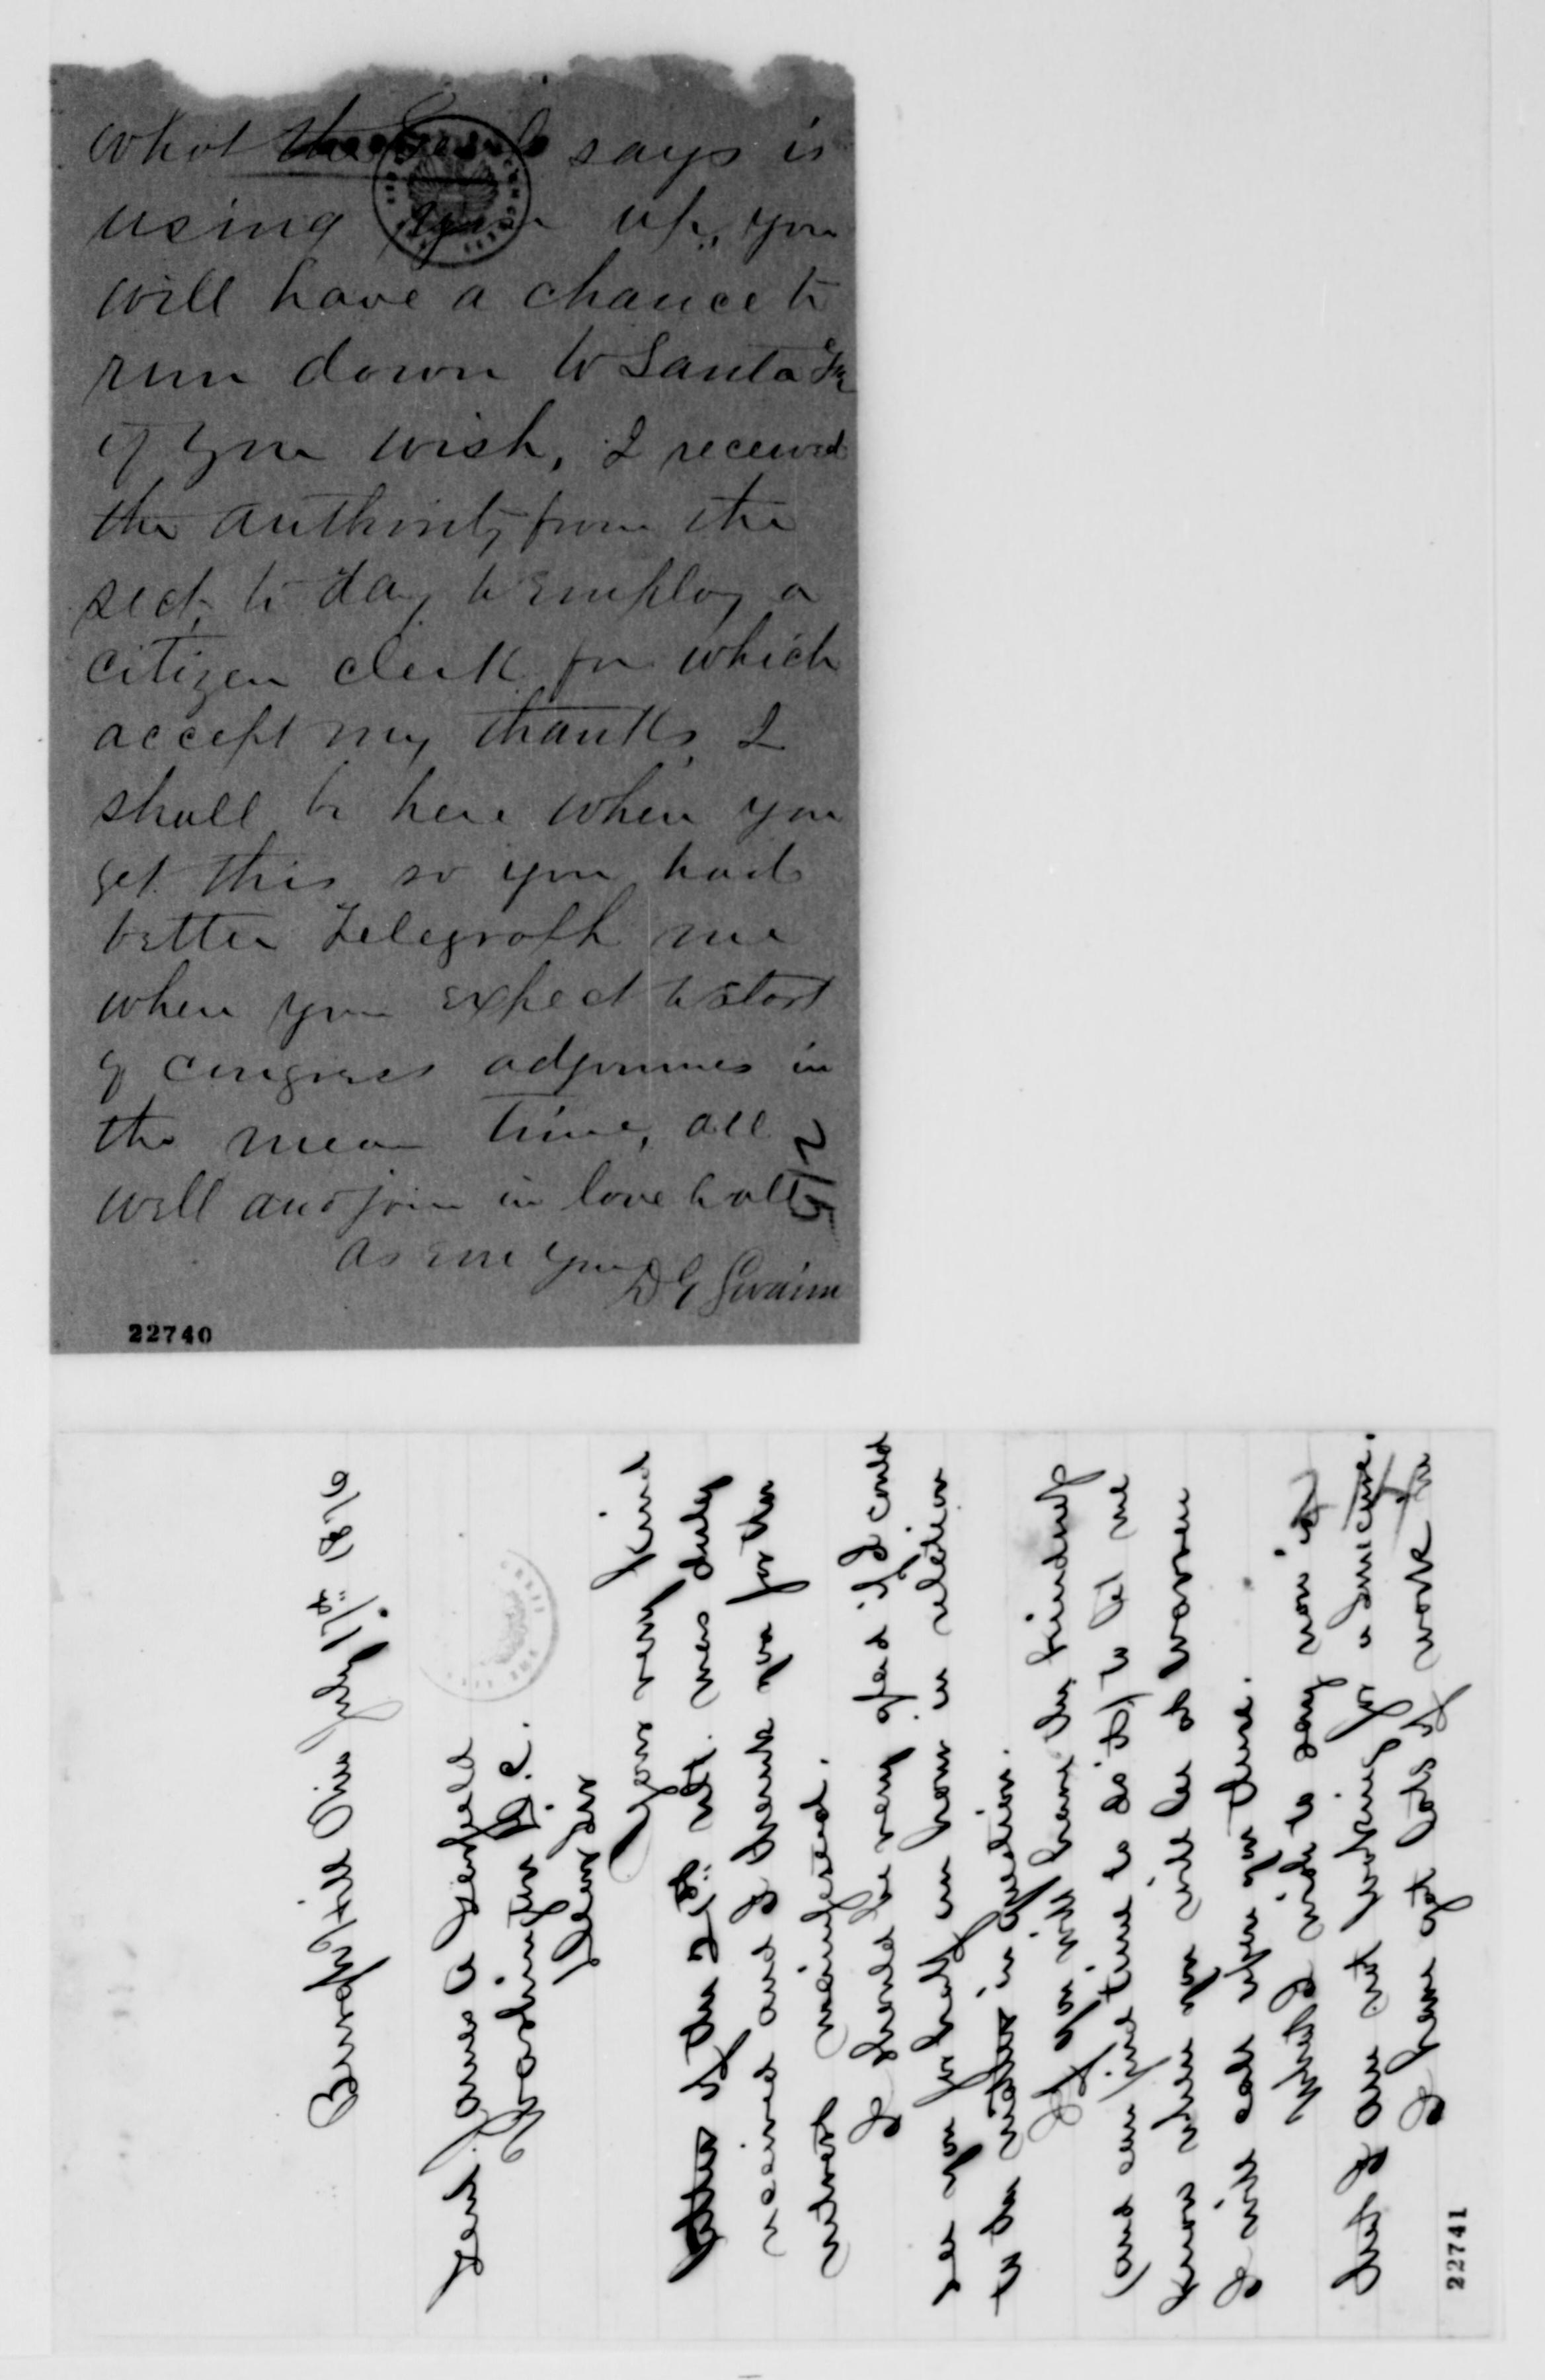 what the Genl says is
using you up, you
will have a chance to
run down to Santa Fe
if you wish, I received
the authority from the
sect. to day to Employ a
citizen clerk for which
accept my thanks, I
shall be here when you
get this so you had
better Telegraph me
when you expect to start
if congress adjournes in
the mean time, all
well and join in love to all
As Ever Your
D G Swaim
5/2
22740
July 17th 1876
Genl. James A Garfield
Washington D.C.
Dear Sir
Your very kind
letter of the 27th ult. was duly
received and I thank you for the
interest manifested.
I should be very glad if I could
see you for half an hour in relation
to the matter in question.
If you will have the kindness
(and can find time to do it) to let me
know when you will be at Warren
I will call upon you there.
What I wish to say now is
that I am not working for a sinecure.
I have got lots of work in
22741